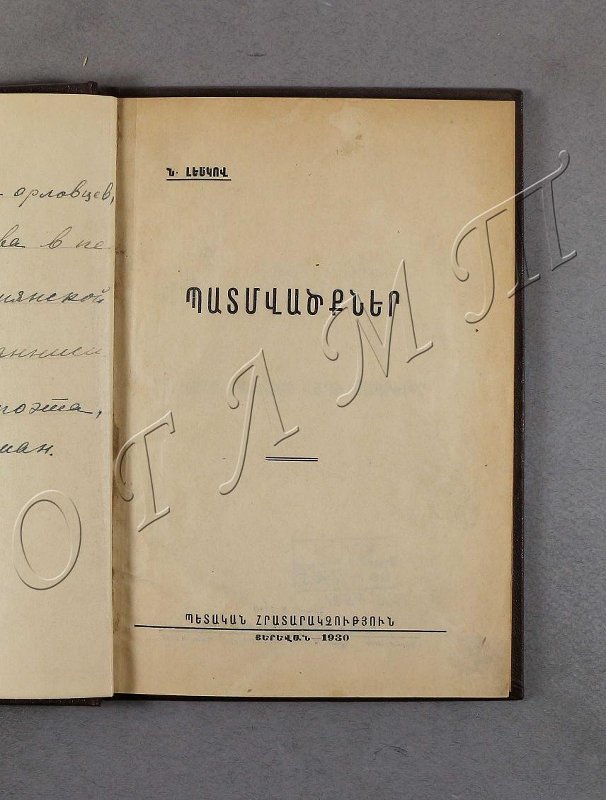 орловцев,
ва в пе
мянской
поэта,
ман.
Ն. ԼԵՍԿՈՎ
ՊԱՏՄՎԱԾՔՆԵՐ
ՊԵՏԱԿԱՆ ՀՐԱՏԱՐԱԿՉՈՒԹՅՈՒՆ
ՅԵՐԵՎԱՆ—1930
ОГЛМТ